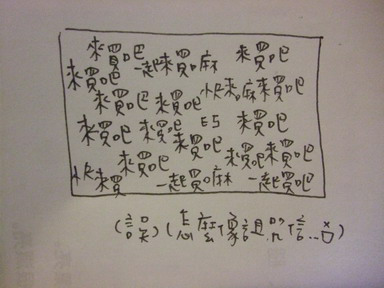 來買吧 來買吧
來買吧 一起來買嘛
來買吧 來買吧 快來嘛 來買吧
來買吧 來買吧 E5 來買吧
來買吧
來買吧 來買吧 來買吧
快來買 一起買嘛 一起買吧
(誤)(怎麼像詛咒信…